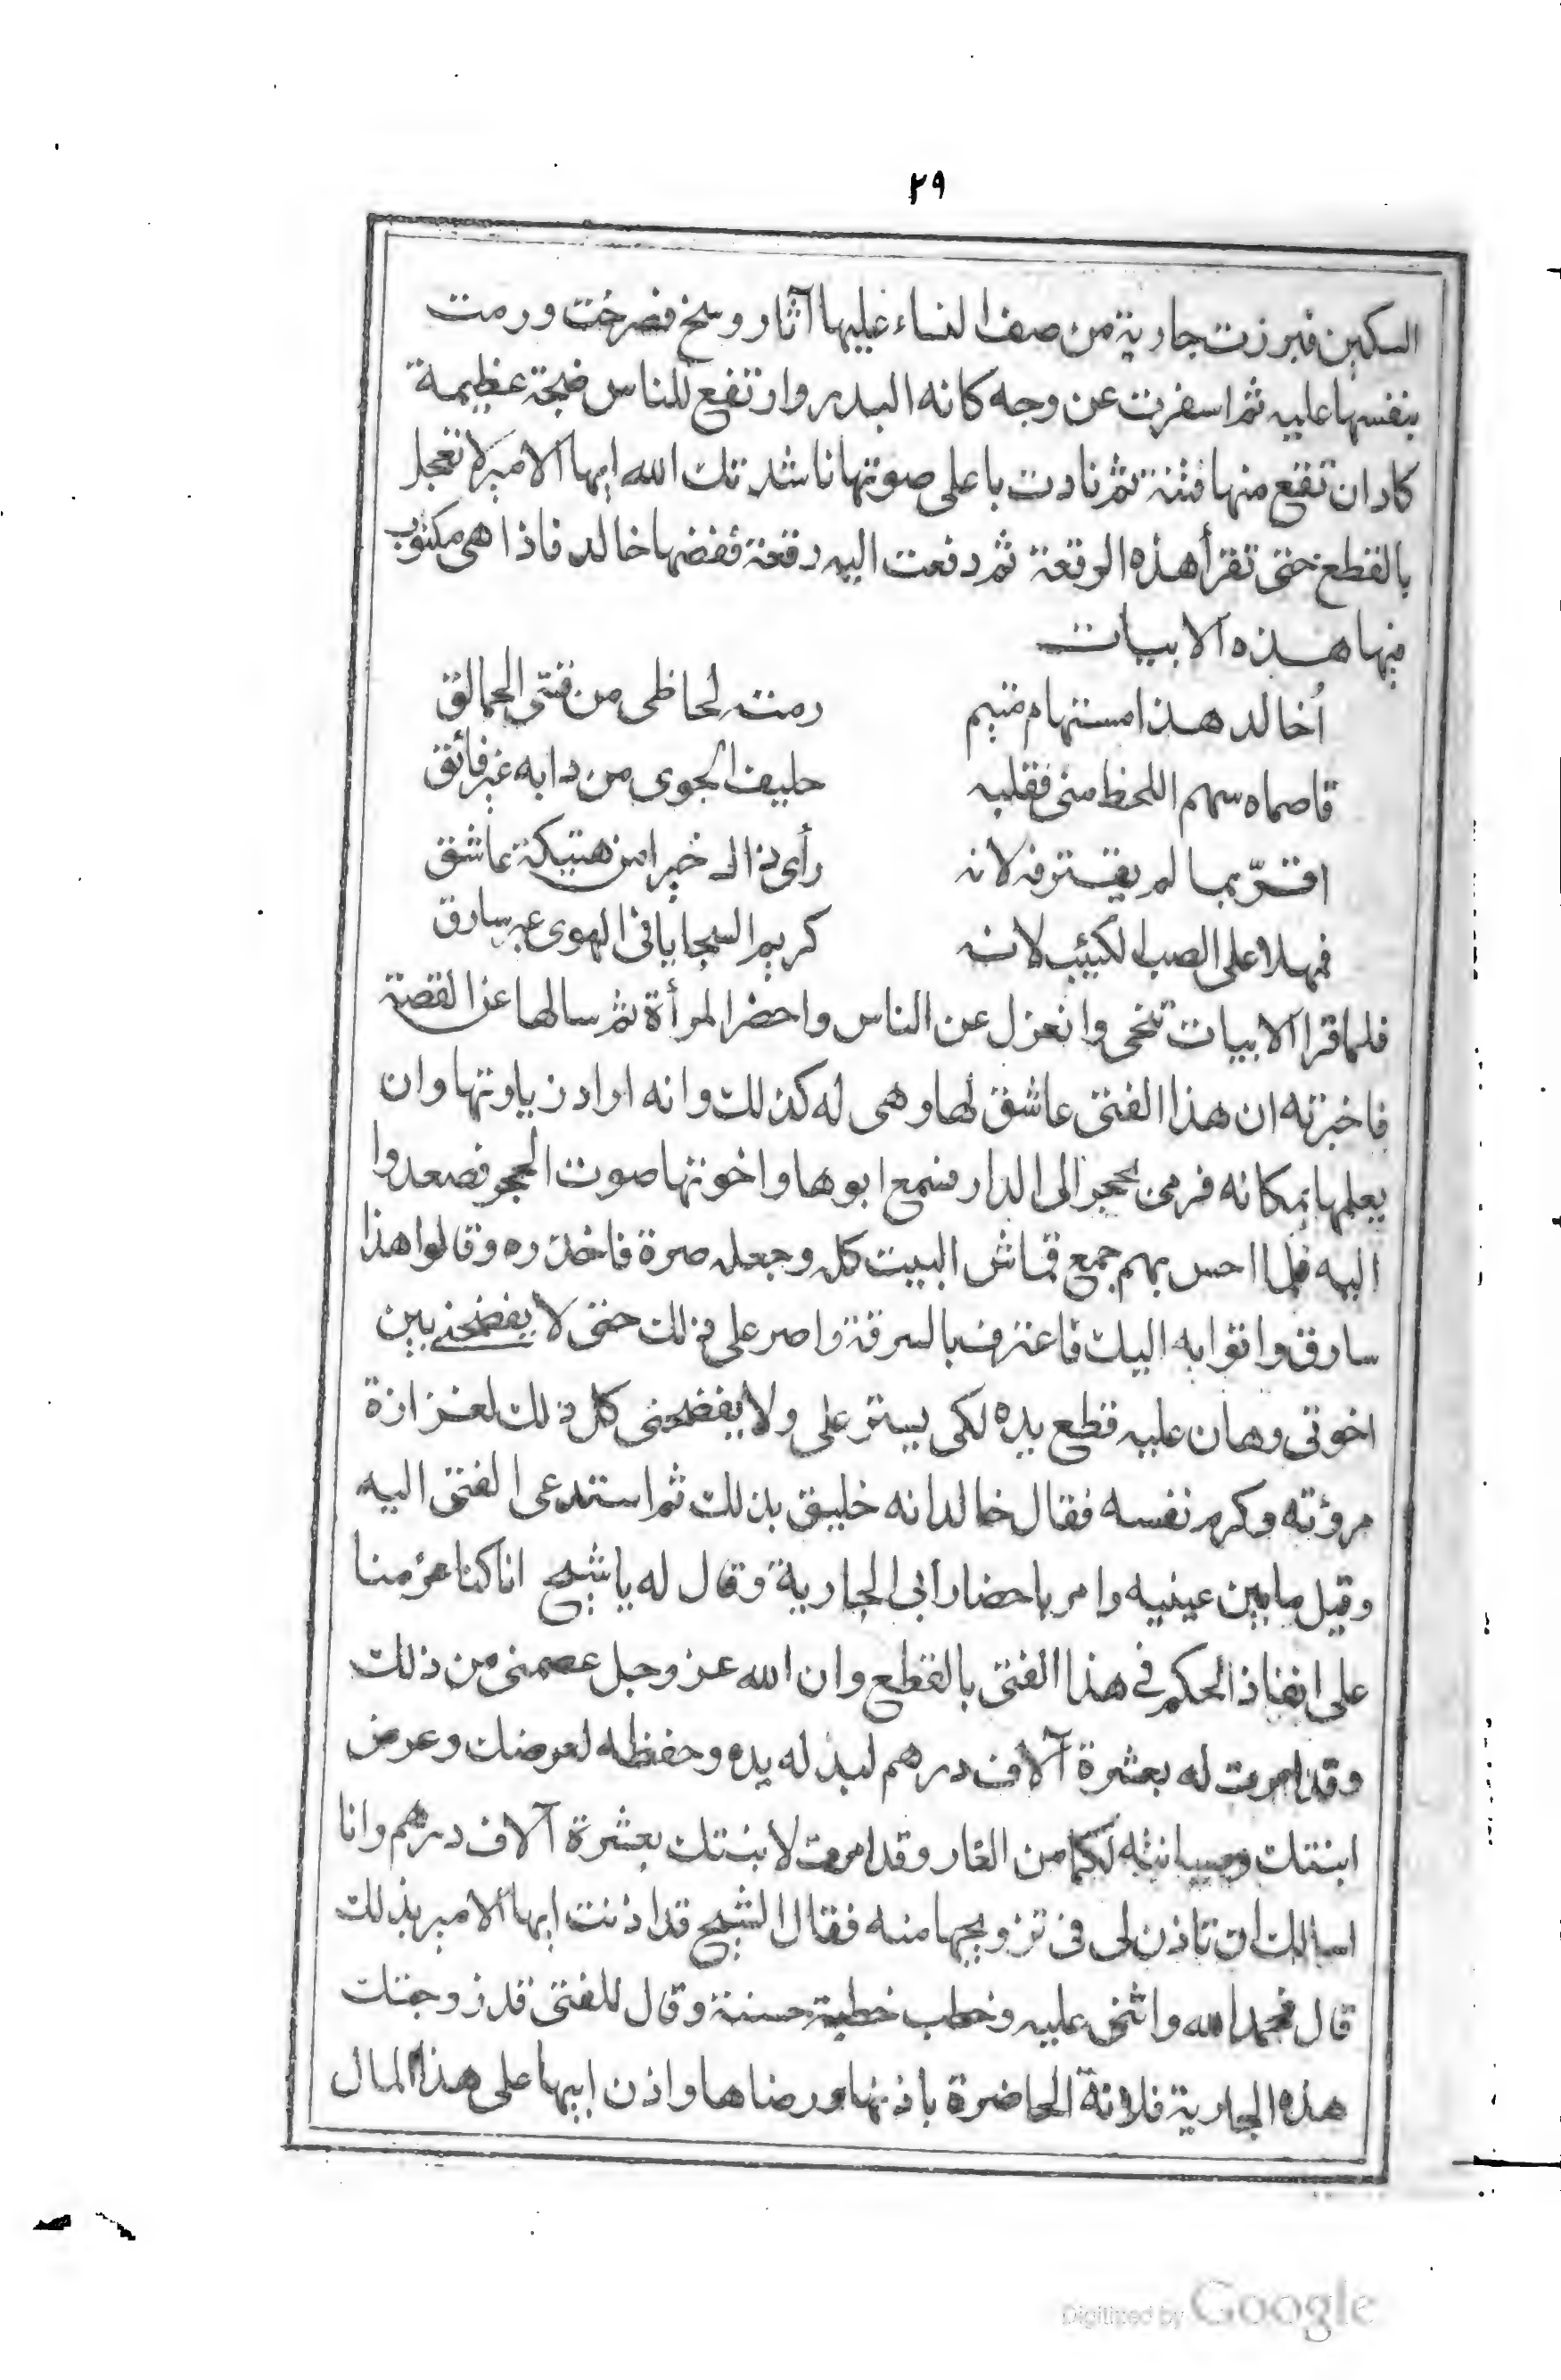 ٢٩
السكين فبرزت جارية من صف النساء عليها آثار وسخ فصرخت ورمت
بنفسها عليه ثم اسفرت عن وجه كانه البدر وارتفع للناس ضجة عظيمة
كاد ان تقع منها فتنة ثم نادت باعلى صوتها ناشدتك الله ايها الامير لا تعجل
بالقطع حتى تقرأ هذه الرقعة ثم دفعت اليه رقعة ففضها خالد فاذا هى مكتوب
فيها هذه الابيات
أخالد هذا مستهام متيم رمته لحاظى من قسى الحمالق
فاصماه سهم اللحظ منى فقلبه حليف الجوى من دابه غير فائق
اقرّ بما لم يقترفه لانه رأى ذاك خيرا من هتيكة عاشق
فمهلا على الصب الكئيب لانه كريم السجايا فى الهوى غير سارق
فلما قرا الابيات تنحى وانعزل عن الناس واحضر المرأة ثم سالها عن القصة
فاخبرته ان هذا الفتى عاشق لها وهى له كذلك وانه اراد زيارتها وان
يعلمها بمكانه فرمى بحجر الى الدار فسمع ابوها واخوتها صوت الحجر فصعدوا
اليه فلما احس بهم جمع قماش البيت كله وجعله صرة فاخذوه وقالوا هذا
سارق واتوا به اليك فاعترف بالسرقة واصر على ذلك حتى لا يفضحنى بين
اخوتى وهان عليه قطع يده لكى يستر على ولا يفضحنى كل ذلك لغزارة
مروءته وكرم نفسه فقال خالد انه خليق بذلك ثم استدعى الفتى اليه
وقبل ما بين عينيه وامر باحضار ابى الجارية وقال له يا شيخ انا كنا عزمنا
على انفاذ الحكم فى هذا الفتى بالقطع وان الله عز وجل عصمنى من ذلك
وقد امرت له بعشرة آلاف درهم لبذله يده وحفظه لعرضك وعرض
ابنتك وصيانته لكما من العار وقد امرت لابنتك بعشرة آلاف درهم وانا
اسالك ان تاذن لى فى تزويجها منه فقال الشيخ قد اذنت ايها الامير بذلك
قال فحمد الله واثنى عليه وخطب خطبة حسنة وقال للفتى قد زوجتك
هذه الجارية فلانة الحاضرة باذنها ورضاها واذن ابيها على هذا المال
Digitized by Google